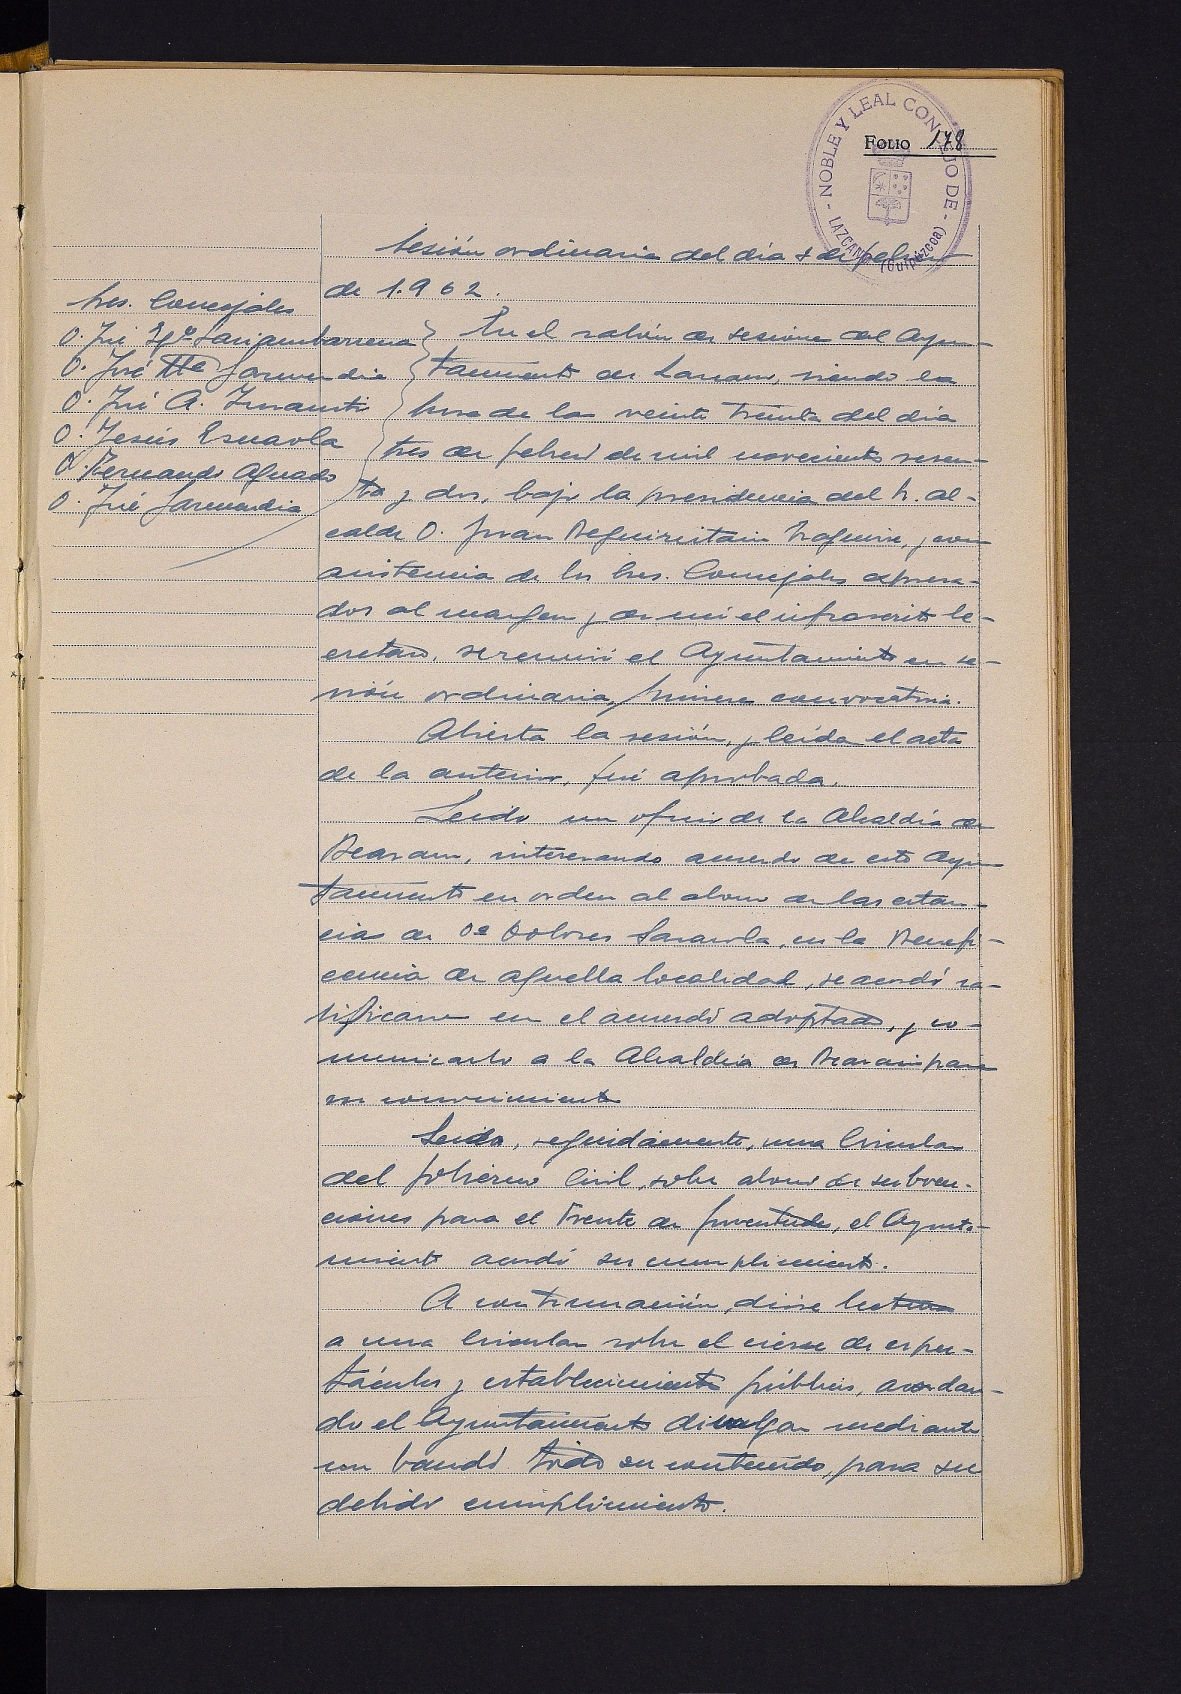 FOLIO 178
NOBLE Y LEAL CONCEJO DE
LAZCANO (Guipúzcoa)
Sesión ordinaria del día 3 de febrero
de 1.962.
Sres. Concejales
D. José Igº
D. José Mª Garmendia
D. José A.
D. Jesús
D. Fernando Aguado
D. José Garmendia
En el salón de sesiones del Ayun-
tamiento de Lazcano, siendo la
hora de las veinte treinta del día
tres de febrero de mil novecientos sesen-
ta y dos, bajo la presidencia del Sr. Al-
calde D. Juan Beguiristain, y con
asistencia de los Sres. Concejales expresa-
dos al margen y de mi el infrascrito Se-
cretario, se reunió el Ayuntamiento en se-
sión ordinaria, primera convocatoria.
Abierta la sesión, y leída el acta
de la anterior, fué aprobada.
Leido un oficio de la Alcaldía de
Beasain, interesando acuerdo de este Ayun
tamiento en orden al abono de las estan-
cias de Dª Dolores, en la Benefi-
cencia de aquella localidad, se acordó ra-
tificarse en el acuerdo adoptado, y co-
municarlo a la Alcaldía de Beasain para
su conocimiento
Leida, seguidamente, una Circular
del Gobierno Civil, sobre abono de subven-
ciones para el Frente de Juventudes, el Ayunta-
miento acordó su cumplimiento.
A continuación, dióse lectura
a una Circular sobre el cierre de espec-
táculos y establecimientos públicos, acordan-
do el Ayuntamiento divulgar mediante
un bando todo su contenido, para su
debido cumplimiento.